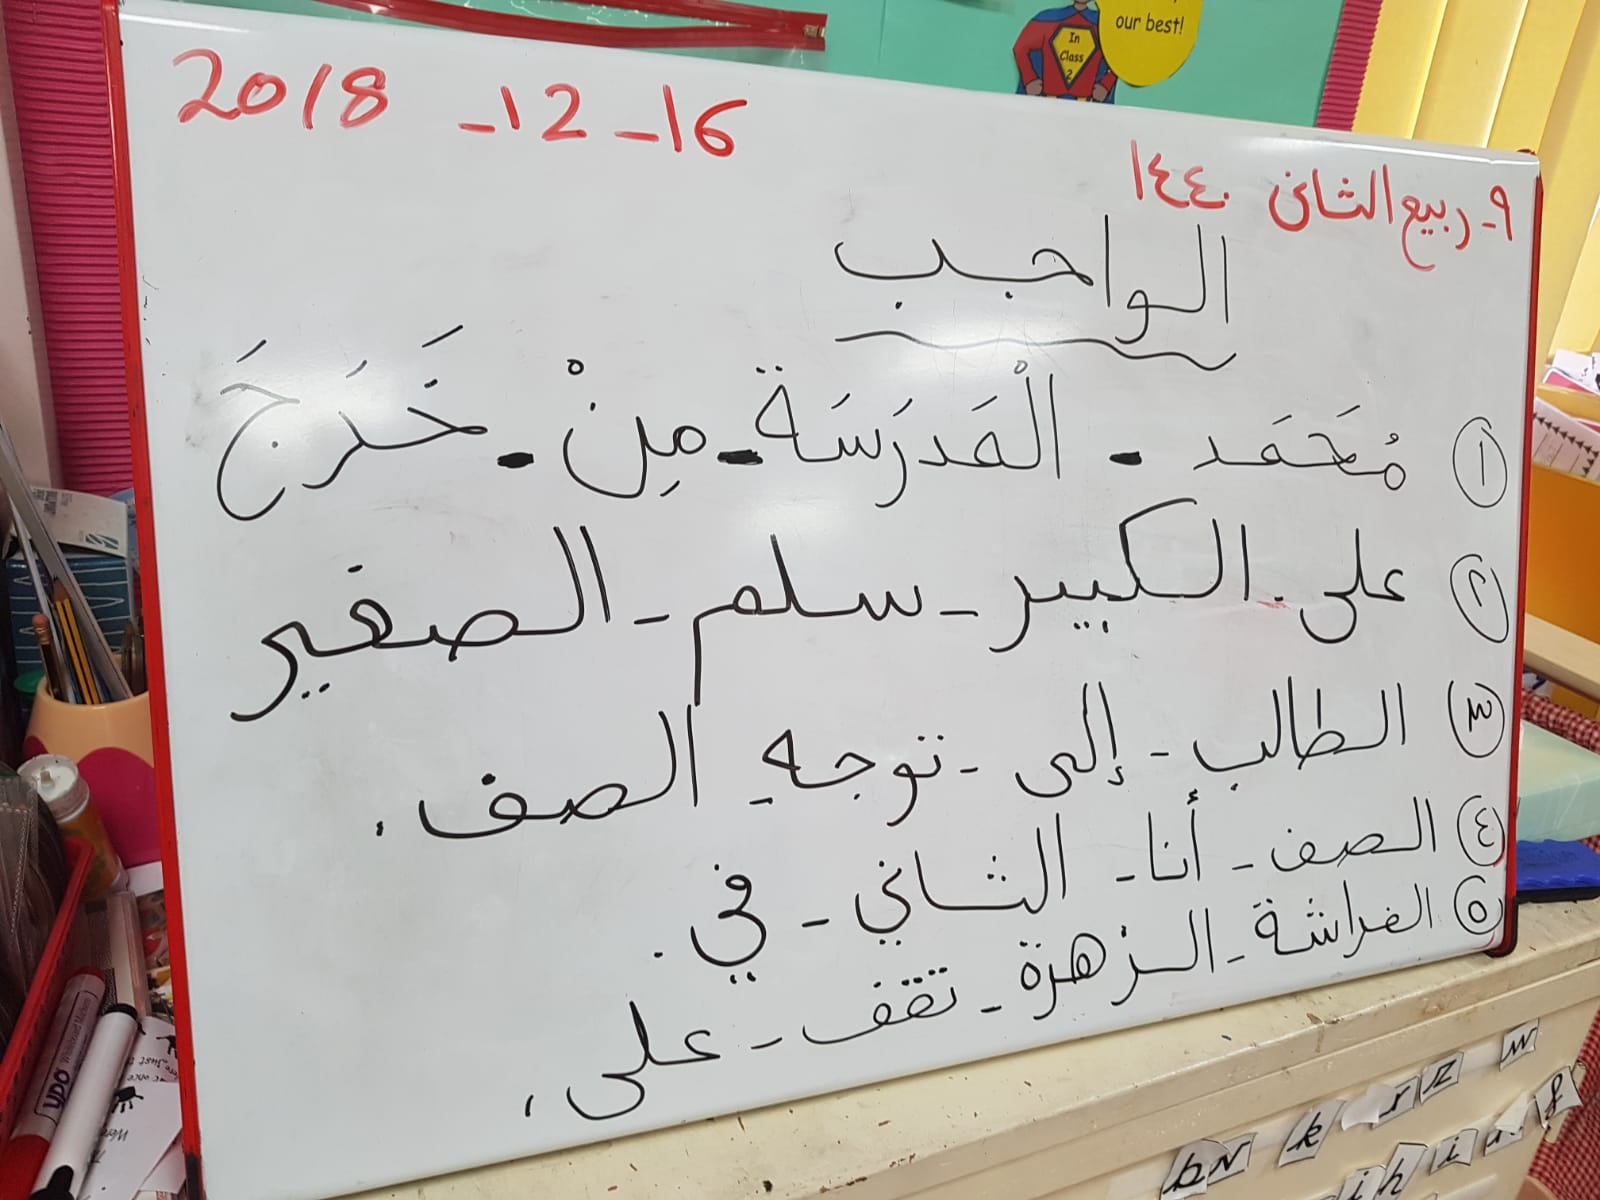 our best!
In
Class
2
2018 - 12 - 16
٩- ربيع الثانى ١٤٤٠
الواجب
١ مُحَمَد - الْمَدرَسَة - مِنْ - خَرَجَ
٢ على - الكبير - سلم - الصغير
٣ الطالب - إلى - توجه - الصف .
٤ الصف - أنا - الثاني - في .
٥ الفراشة - الزهرة - تقف - على .